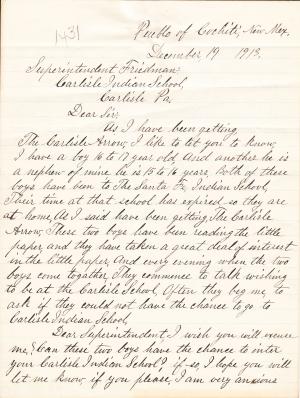 1431
Pueblo of Cochiti, New Mex.
December 19 1913.
Superintendent Friedman.
Carlisle Indian School,
Carlisle Pa.
Dear Sir;
As I have been getting
The Carlisle Arrow, I like to let you to know,
I have a boy 16 to 17 year old And another he is
a nephew of mine he is 15 to 16 years, Both of these
boys have ben to The Santa Fe, Indian School,
Their time at that school has expired so they are
at home, As I said have been getting The Carlisle
Arrow, These two boys have been reading the little
paper, and they have taken a great deal of interest
in the little paper, And every evening when the two
boys come together, They commence to talk wishing
to be at the Carlisle School, Often they beg me to
ask if they could not have the chance to go to
Carlisle Indian School,
Dear Superintendent, I wish you will excuse
me, Can these two boys have the chance to inter
your Carlisle Indian School? if so, I hope you will
let me know, if you please, I am very anxious